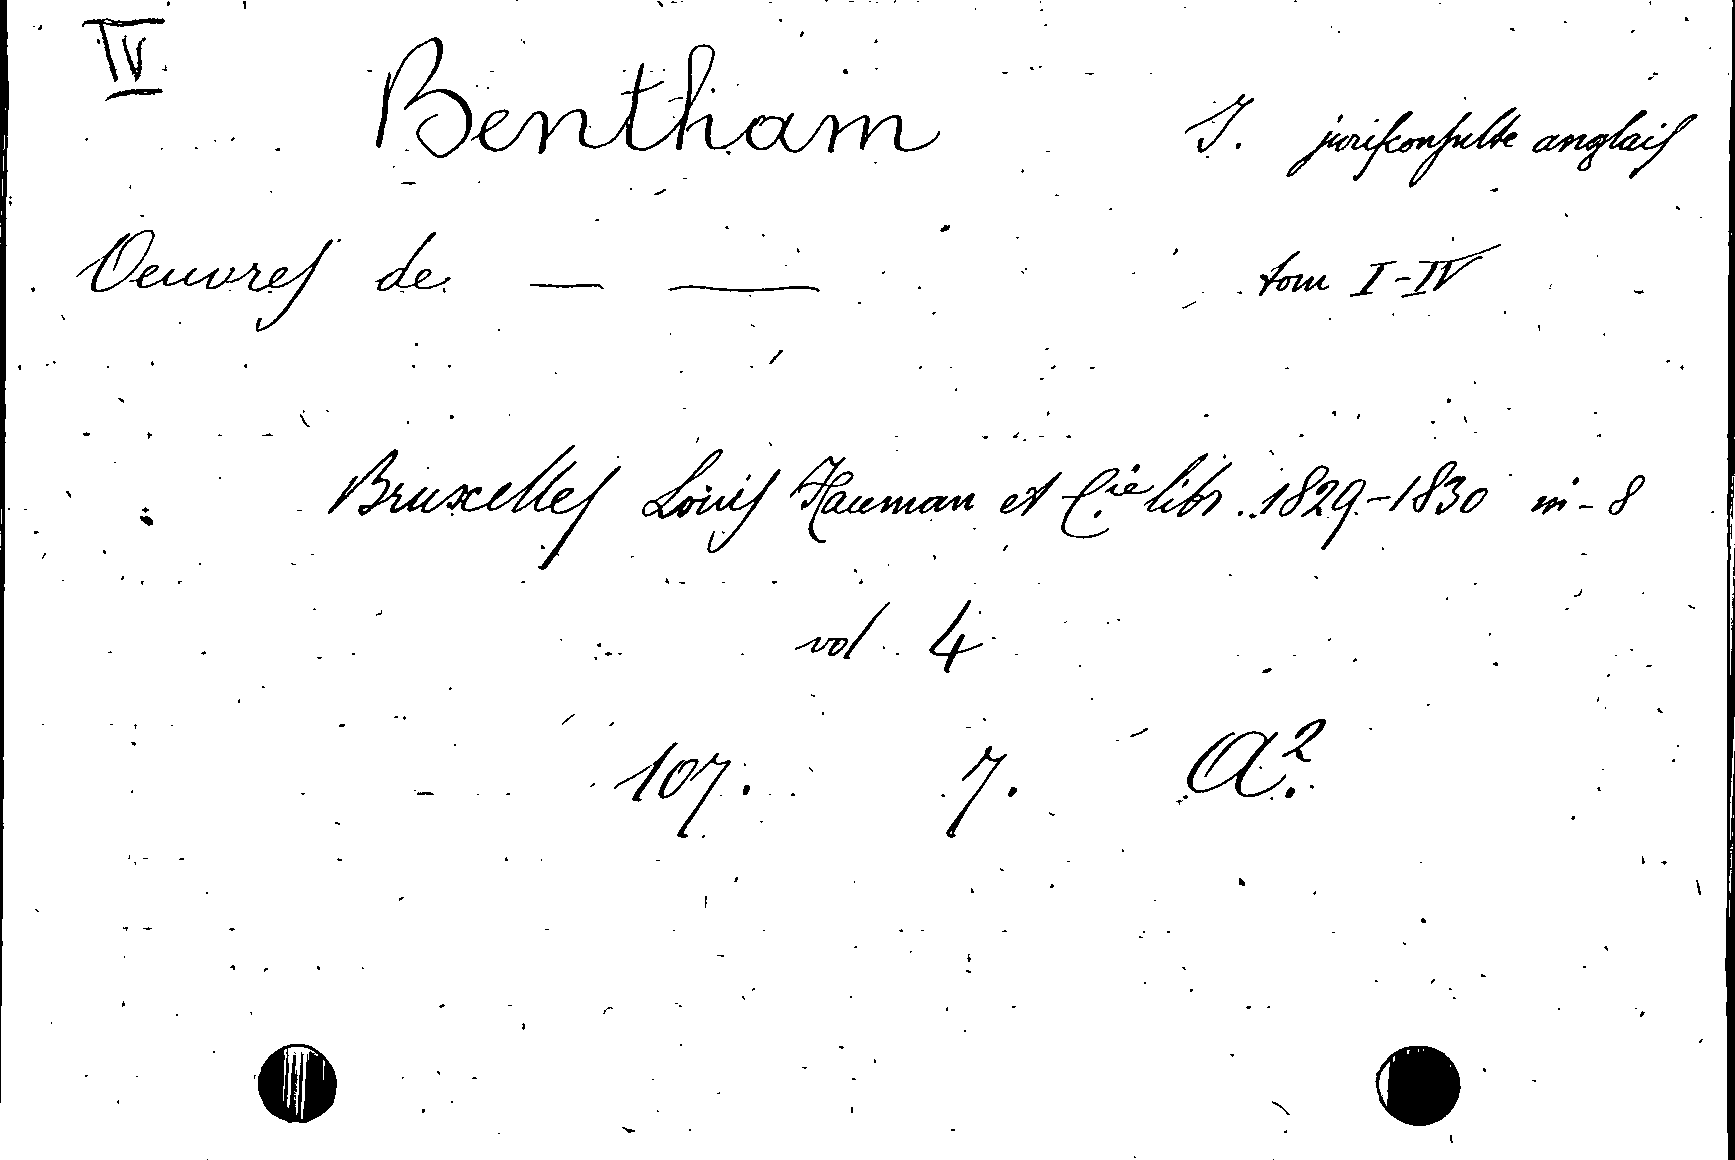 IV
Bentham J. jurisconsulte anglais
Oeuvres de — — tom I-IV
Bruxelles Louis Hauman et Cie libr. 1829-1830 in-8
vol 4
107. 7. A².